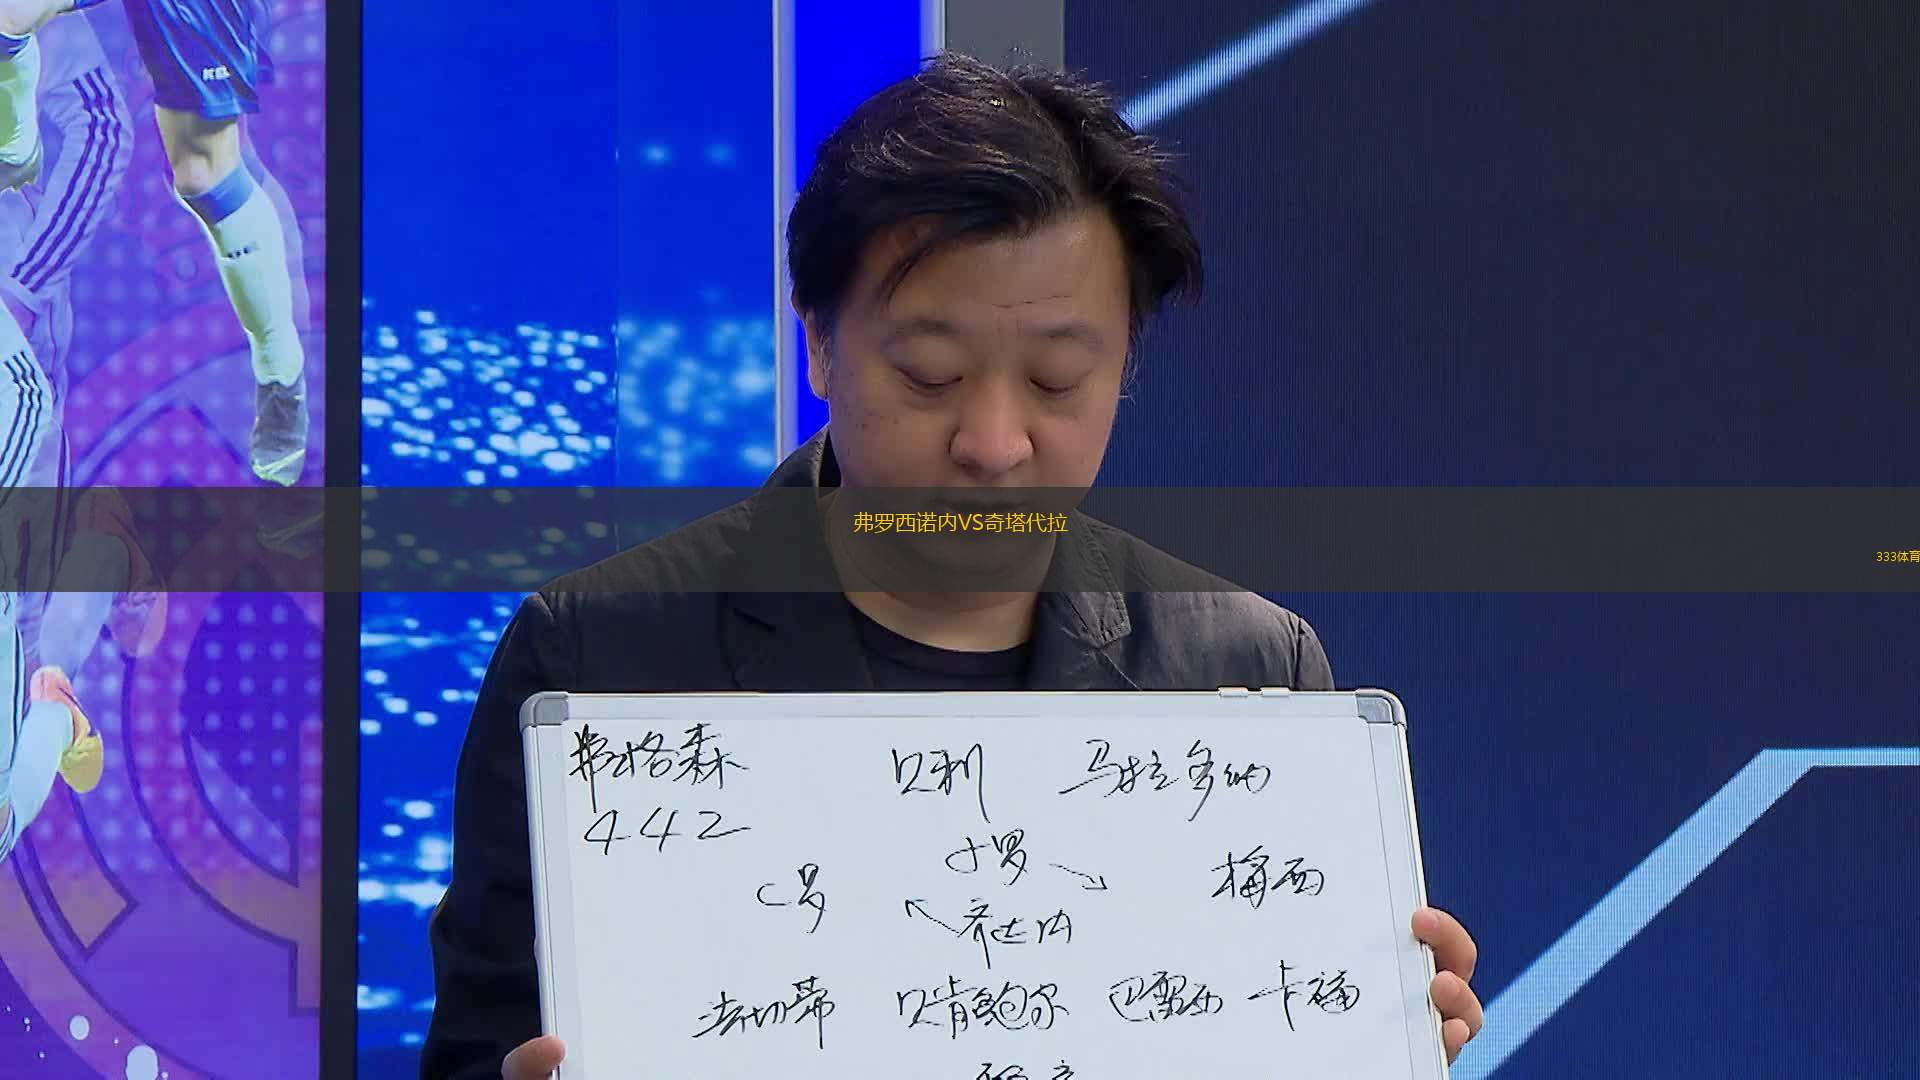 弗罗西诺内VS奇塔代拉
333体育
弗格森 贝利 马拉多纳
442
小罗
C罗 梅西
齐达内
法切蒂 贝肯鲍尔 巴雷西 卡福